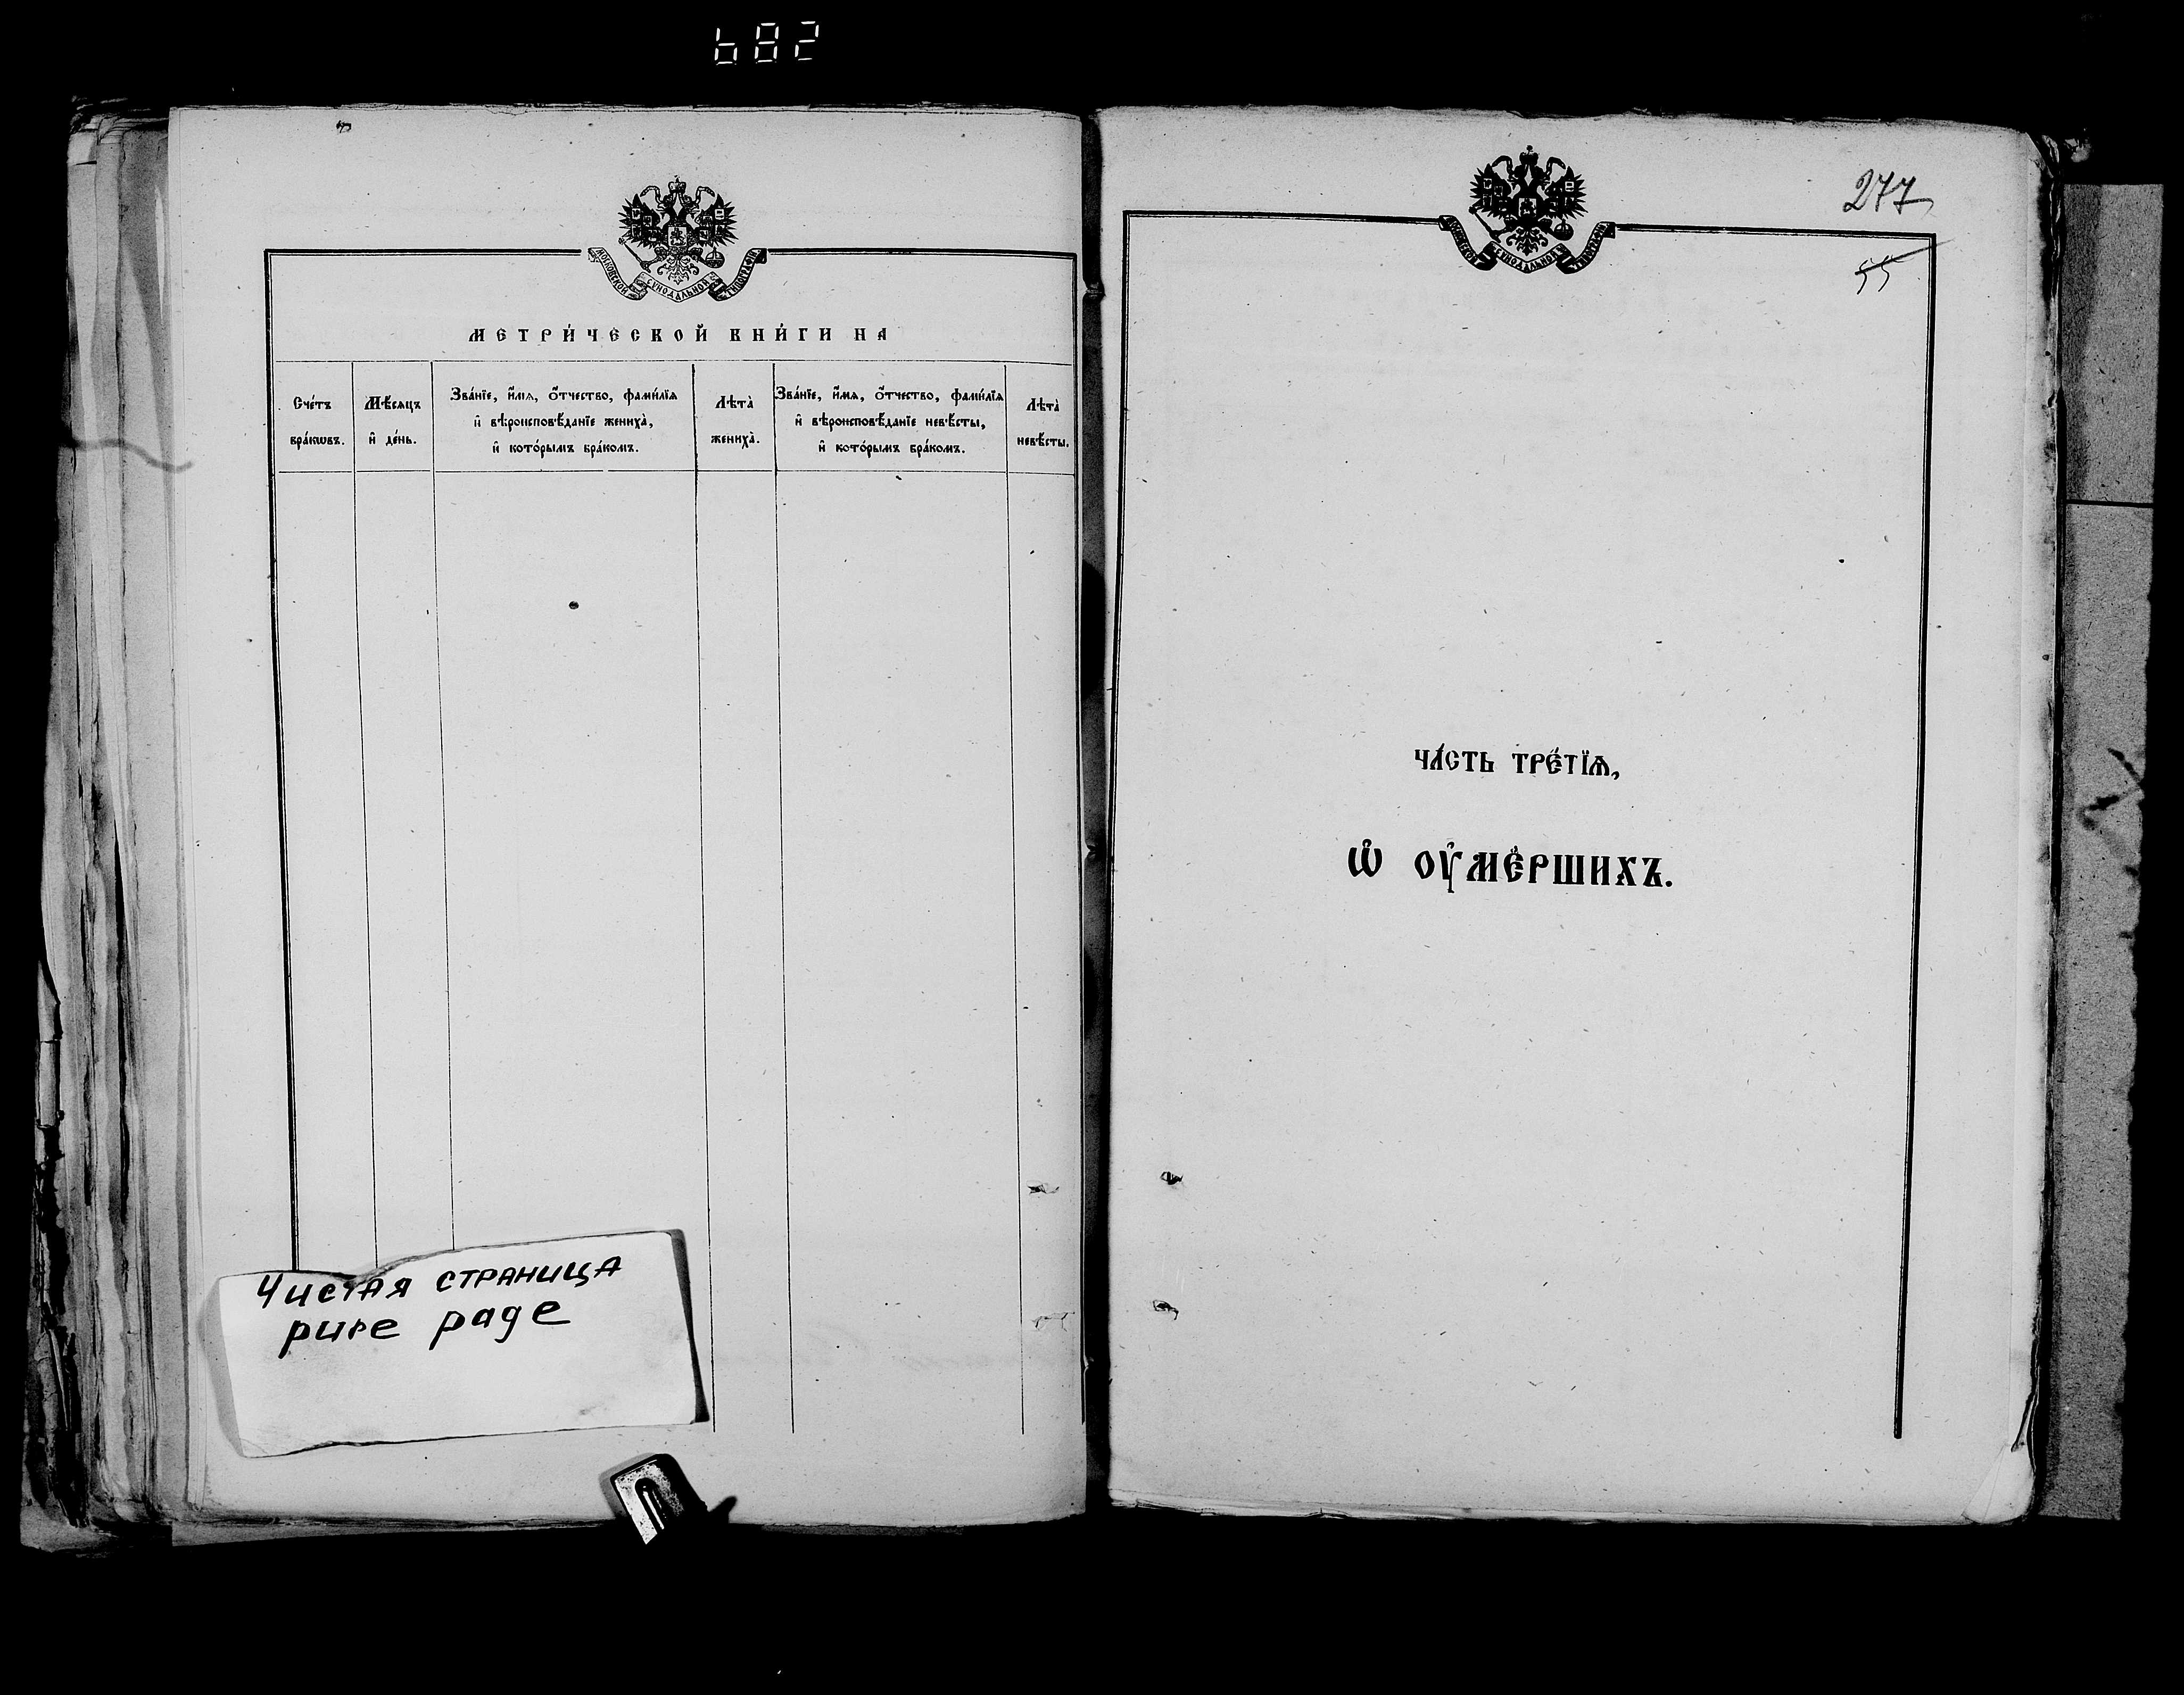 682
МОСКОВСКОЙ СУНОДАЛЬНОЙ ТИПОГРАФІИ
МЕТРИ́ЧЕСКОЙ КНИ́ГИ НА
Сче́тъ
бра́кѡвъ.
Мѣ́сяцъ
и҆ де́нь.
Зва́нїе, и҆́мѧ, ѻ҆́тчество, фами́лїѧ
и҆ вѣроисповѣ́данїе жениха̀,
и҆ кото́рымъ бра́комъ.
Лѣта̀
жениха̀.
Зва́нїе, и҆́мѧ, ѻ҆́тчество, фами́лїѧ
и҆ вѣроисповѣ́данїе невѣ́сты,
и҆ кото́рымъ бра́комъ.
Лѣта̀
невѣ́сты.
Чистая страница
pure page
277
МОСКОВСКОЙ СУНОДАЛЬНОЙ ТИПОГРАФІИ
55
ЧА́СТЬ ТРЕ́ТЇѦ,
Ѡ҆ ОУ҆МЕ́РШИХЪ.